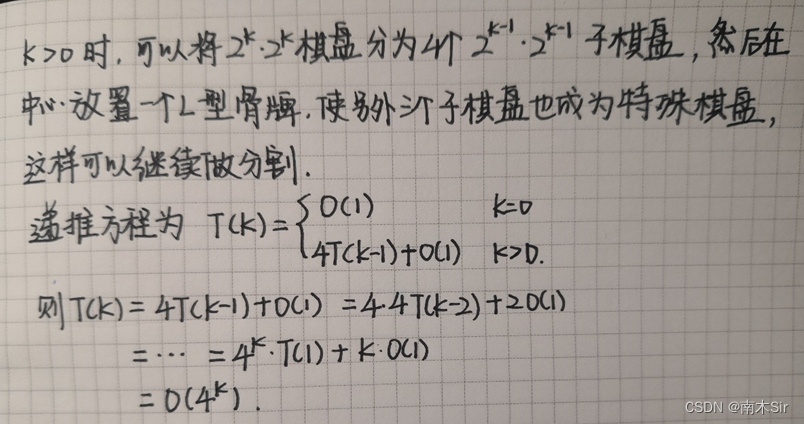 k>0时,可以将2^k·2^k棋盘分为4个2^{k-1}·2^{k-1}子棋盘,然后在
中心放置一个L型骨牌.使另外三个子棋盘也成为特殊棋盘,
这样可以继续做分割.
递推方程为 T(k)={O(1) k=0
4T(k-1)+O(1) k>0.
则T(k)=4T(k-1)+O(1)=4·4T(k-2)+2O(1)
=···=4^k·T(1)+k·O(1)
=O(4^k).
CSDN @南木Sir